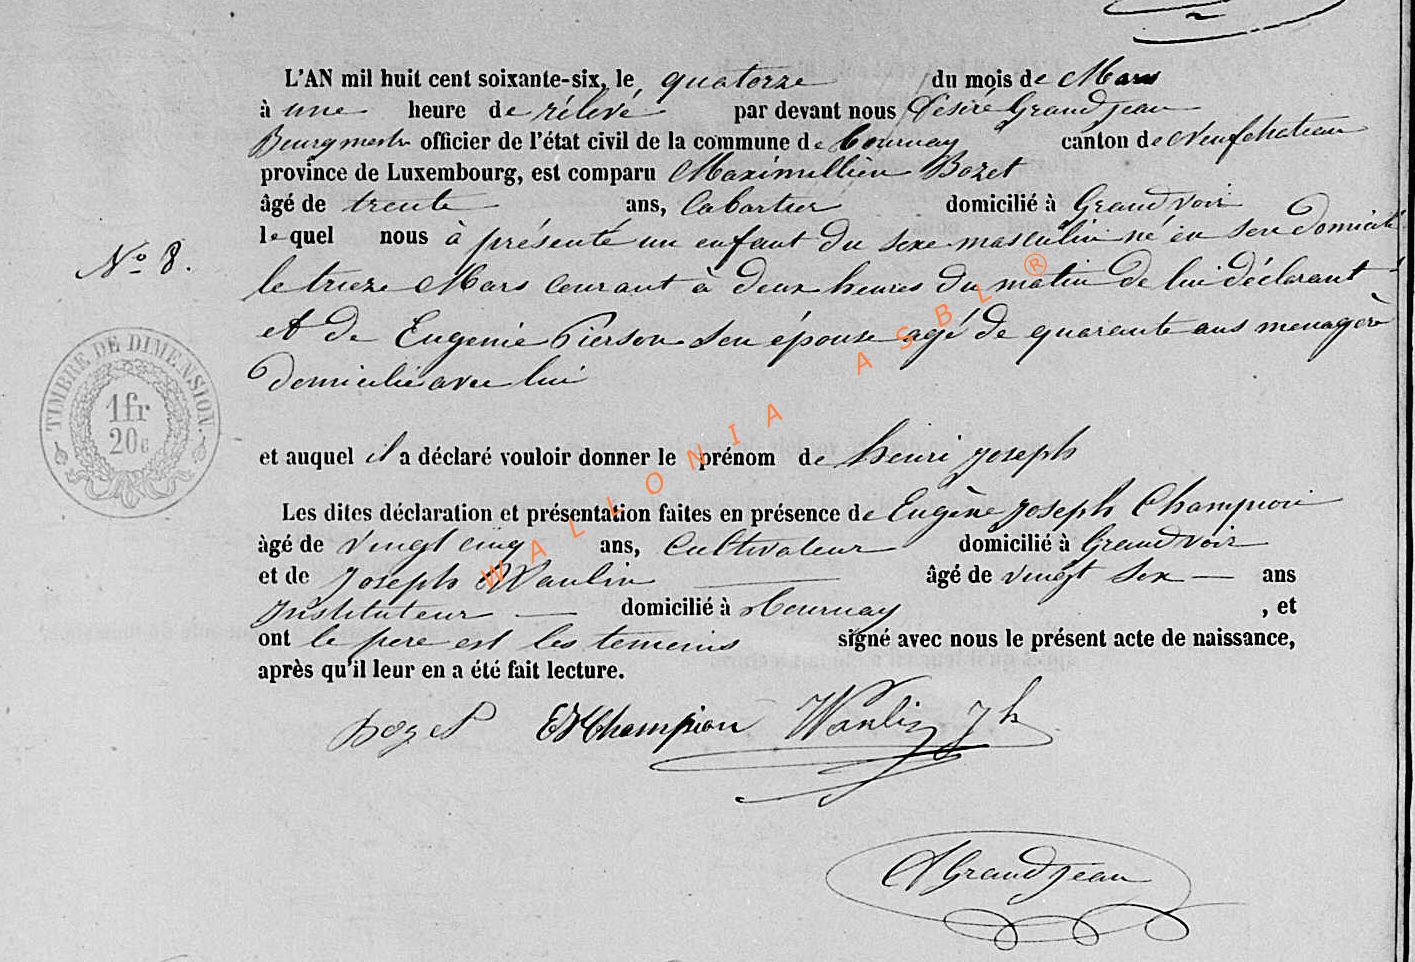 L'AN mil huit cent soixante-six, le quatorze du mois de Mars
à une heure de rélévé par devant nous Désiré Grandjean
Bourgmestre officier de l'état civil de la commune de Tournay canton de Neufchateau
province de Luxembourg, est comparu Maximillien Bozet
âgé de trente ans, Cabartier domicilié à Grandvoir
lequel nous à présenté un enfant du sexe masculin né en son domicile
N° 8.
le trieze Mars courant à deux heures du matin de lui déclarant
et de Eugénie Pierson son épouse agé de quarante ans menagère
domicilié avec lui
TIMBRE DE DIMENSION.
1 fr
20 c
et auquel il a déclaré vouloir donner le prénom de henri joseph
Les dites déclaration et présentation faites en présence de Eugène joseph Champion
âgé de vingt cinq ans, Cultivateur domicilié à Grandvoir
et de Joseph Wanlin âgé de vingt sex ans
Instituteur domicilié à Tournay , et
ont le pere est les temoins signé avec nous le présent acte de naissance,
après qu'il leur en a été fait lecture.
Bozet EJChampion Wanlin Jh
DGrandjean
WALLONIA ASBL ®